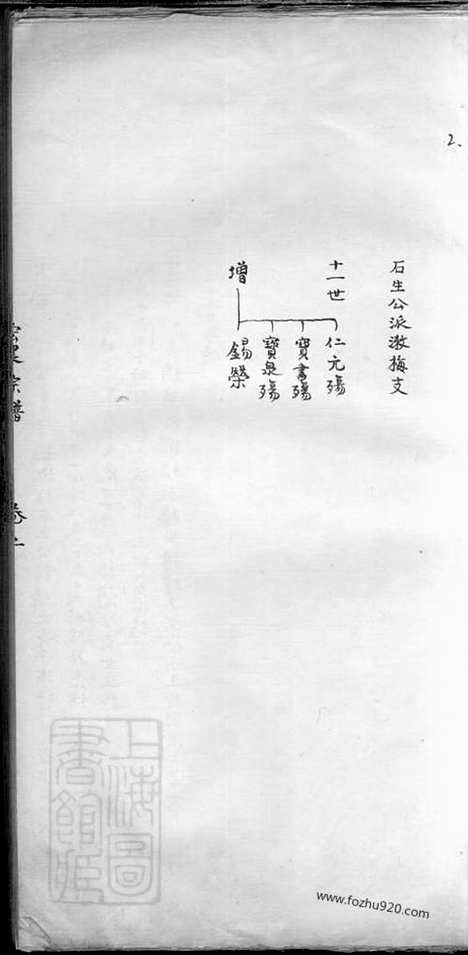 2.
石生公派漱梅支
十一世
仁元殤
寶書殤
寶泉殤
錫榮
增
宗譜
卷上
上海圖書館藏
www.fozhu920.com